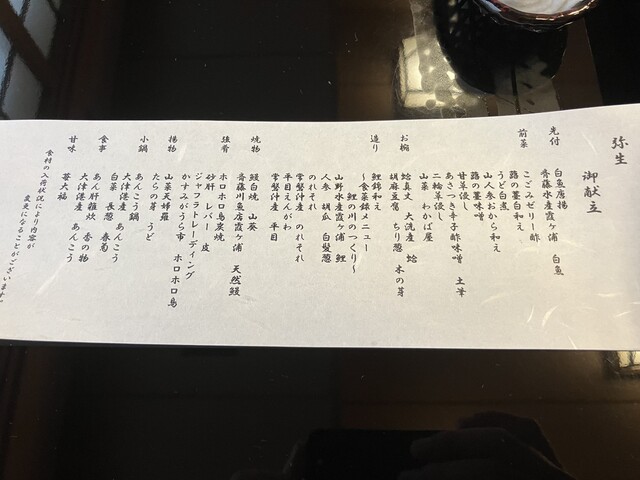 弥生
御献立
先付
白魚唐揚
齊藤水産霞ヶ浦 白魚
こごみゼリー酢
前菜
蕗の墨白和え
うど白煮
山人参おから和え
蕗の墨味噌
甘草浸し
あさつき辛子酢味噌 土筆
二輪草浸し
山菜 わかば屋
お椀
蛤真丈 大洗産 蛤
胡麻豆腐 ちり葱 木の芽
造り
鯉錦和え
～食菜録メニュー
鯉の川のつくり～
山野水産霞ヶ浦 鯉
人参 胡瓜 白髪葱
のれそれ
常磐汁産 のれそれ
平目えんがわ
常磐汁産 平目
焼物
鰻白焼 山葵
齊藤川魚店霞ヶ浦 天然鰻
強肴
ホロホロ鳥炭焼
砂肝 レバー 皮
ジャフラトレーディング
かすみがうら市 ホロホロ鳥
揚物
山菜天婦羅
たらの芽 うど
小鍋
あんこう鍋
大津港産 あんこう
白菜 長葱 春菊
食事
あん肝雑炊 香の物
大津港産 あんこう
甘味
苺大福
食材の入荷状況により内容が
変更になることがございます。